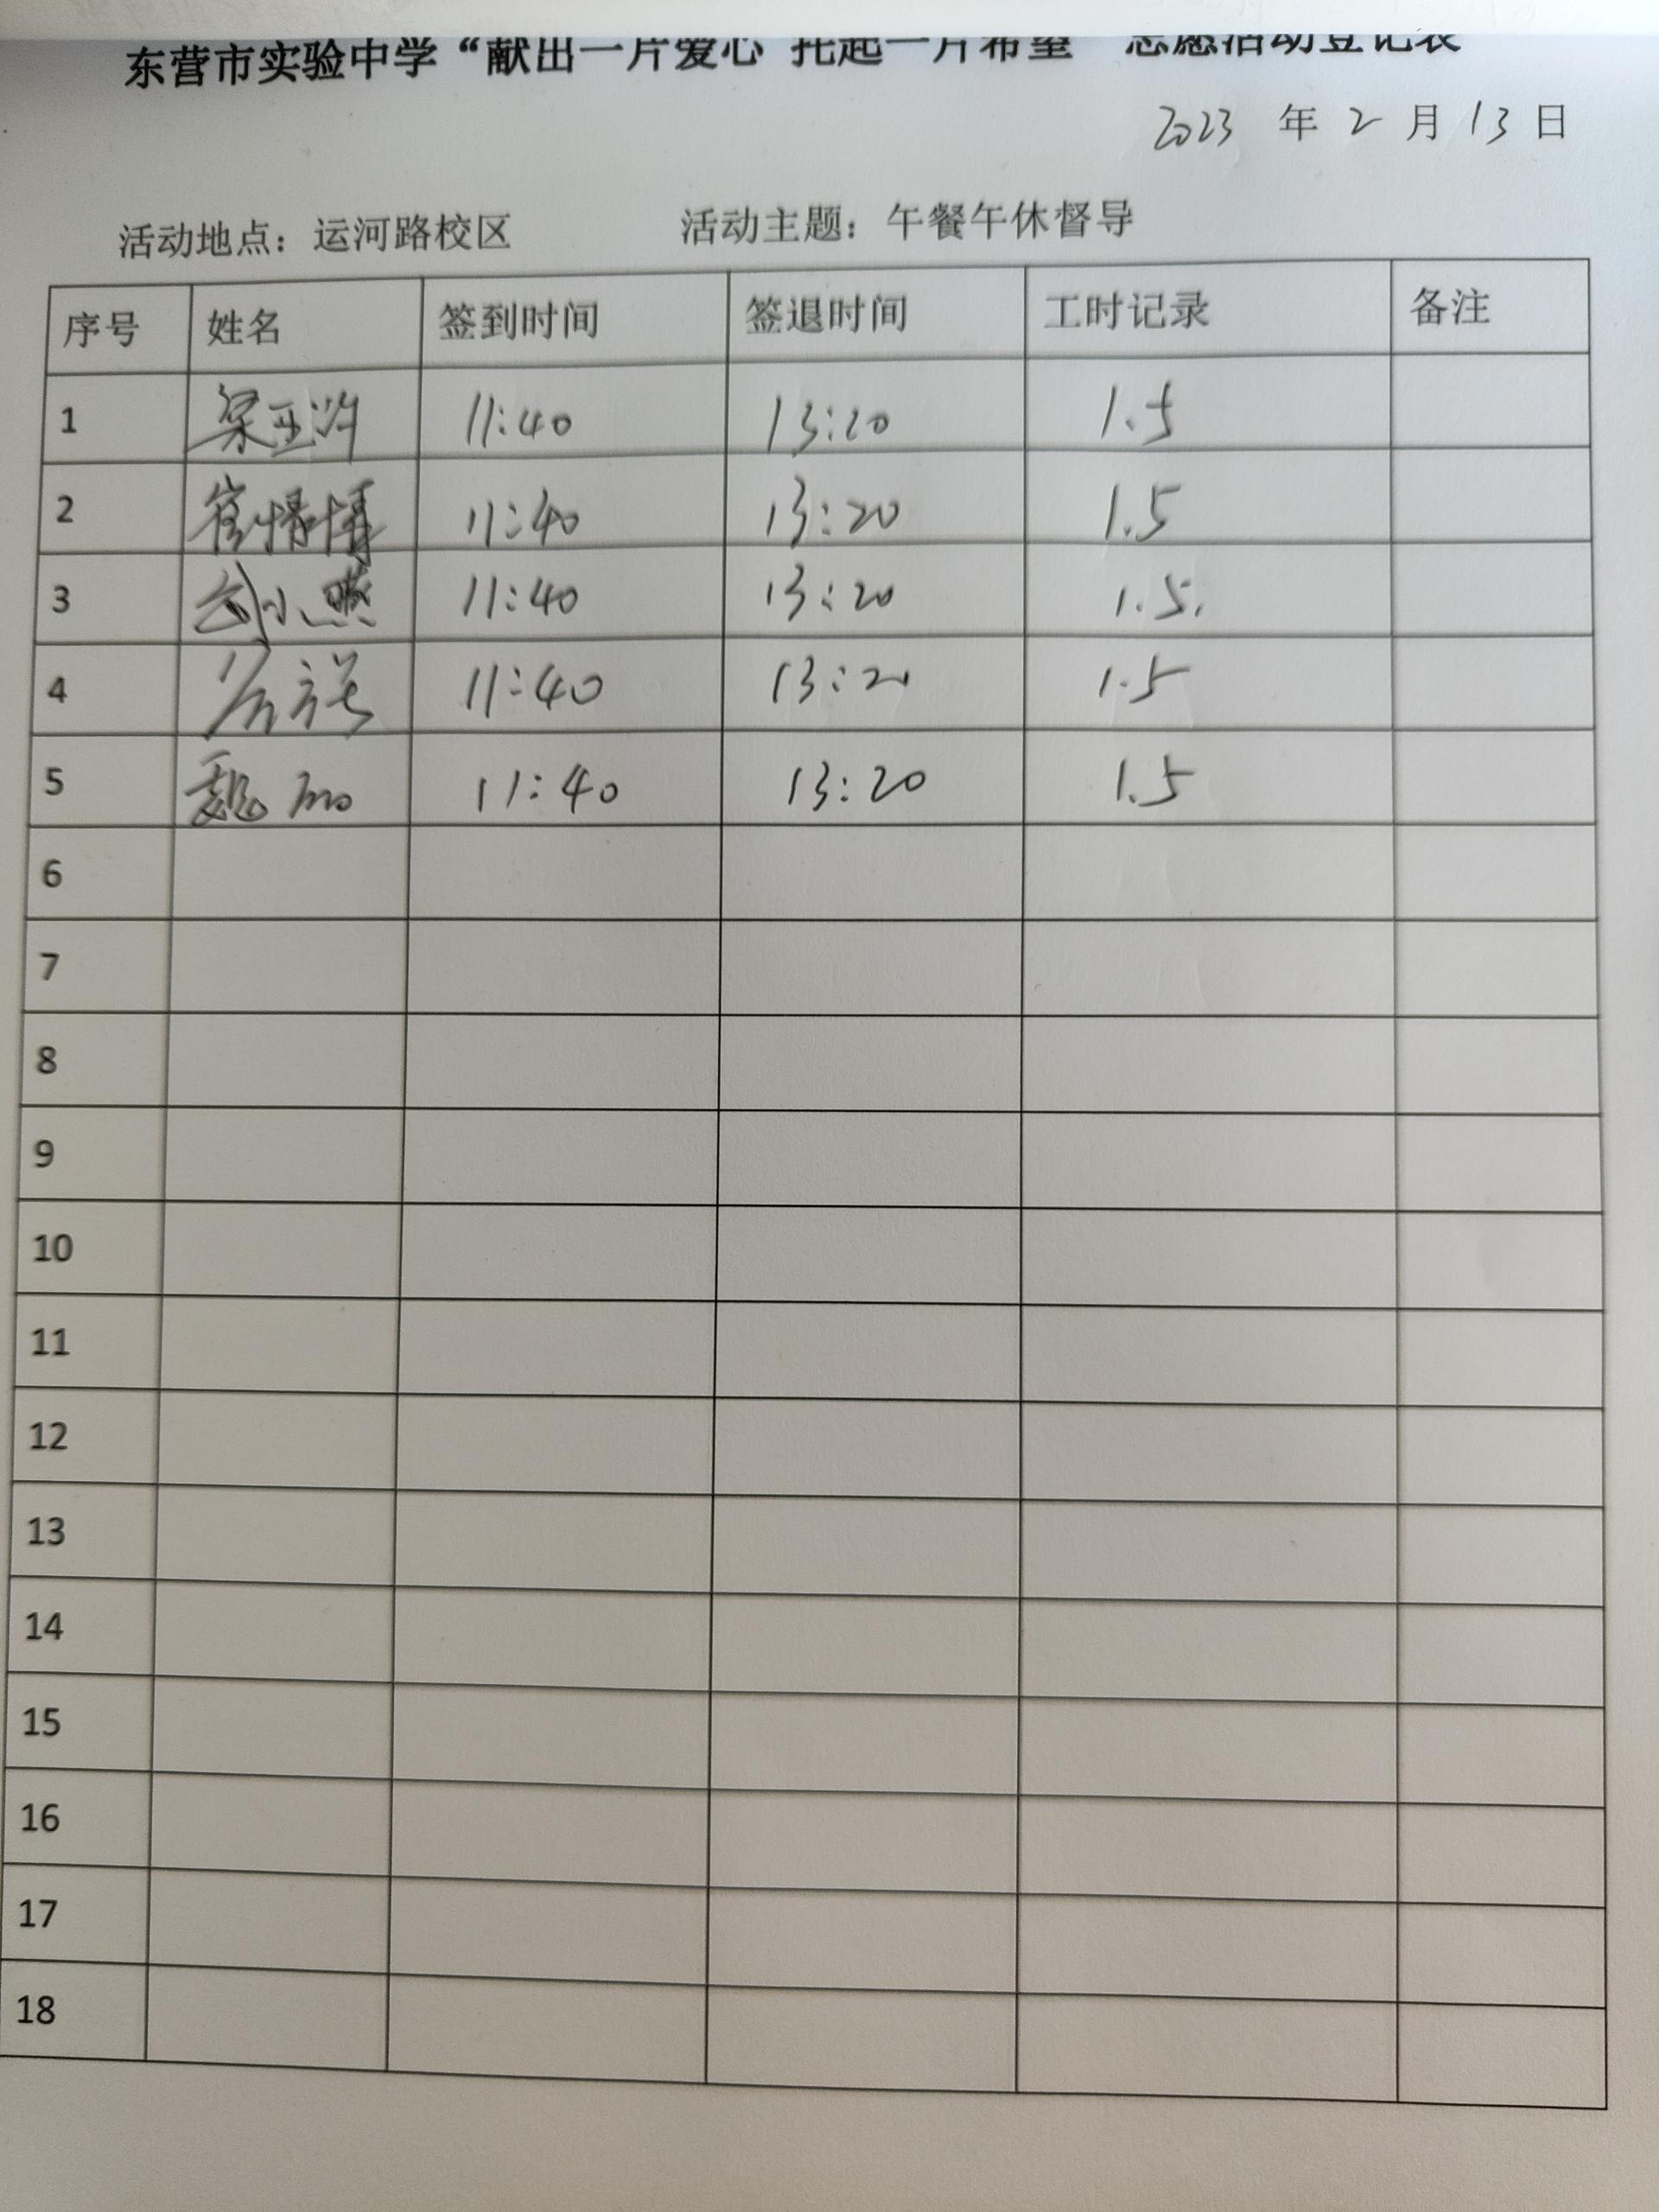 东营市实验中学“献出一片爱心 托起一片希望” 志愿活动登记表
2023 年 2 月 13 日
活动地点：运河路校区 活动主题：午餐午休督导
序号 姓名 签到时间 签退时间 工时记录 备注
1 11:40 13:20 1.5
2 崔倩倩 11:40 13:20 1.5
3 刘小燕 11:40 13:20 1.5.
4 11:40 13:20 1.5
5 魏丽 11:40 13:20 1.5
6
7
8
9
10
11
12
13
14
15
16
17
18